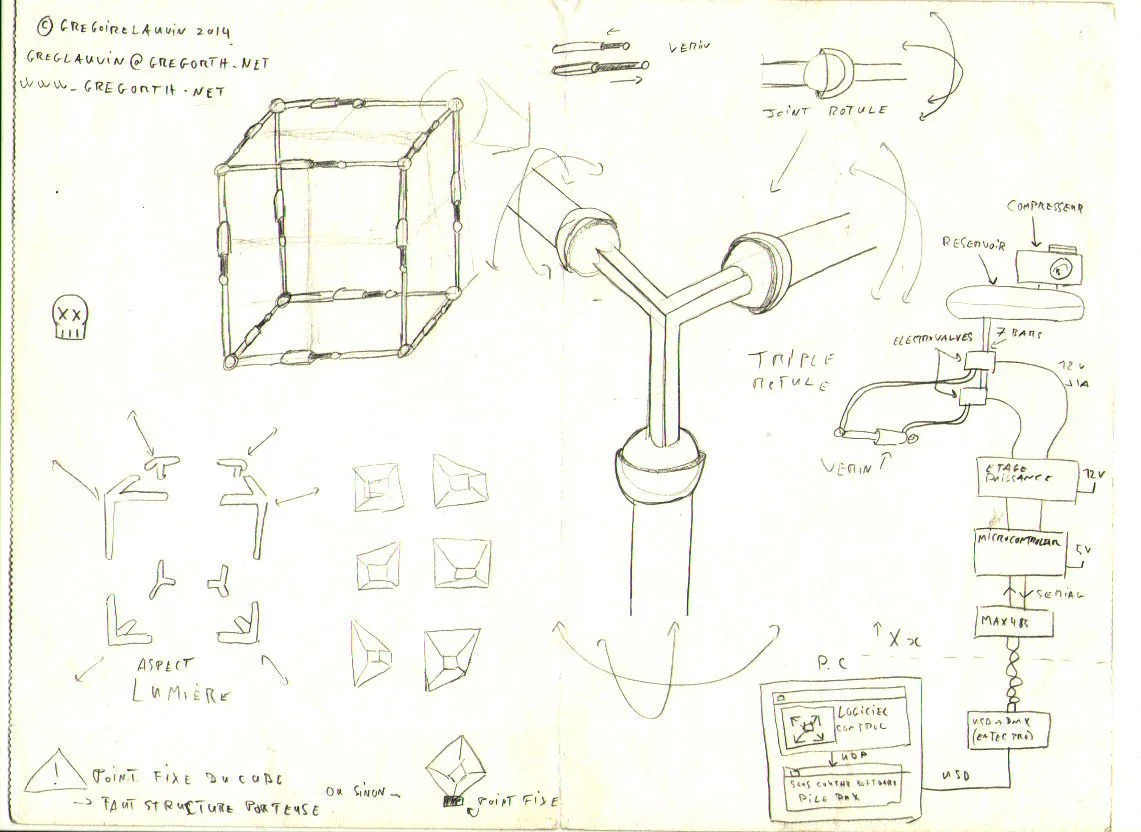 © GREGOIRE LAUVIN 2014
GREGLAUVIN@GREGORTH.NET
www.GREGORTH.NET
VERIN
JOINT ROTULE
COMPRESSEUR
RESERVOIR
7 BARS
ELECTROVALVES
12V
1A
TRIPLE
ROTULE
VERIN
ETAGE
PUISSANCE
12V
MICROCONTROLEUR
5V
SERIAL
MAX485
ASPECT
LUMIÈRE
P.C
LOGICIEL
CONTROL
UDP
PILE DMX
USB → DMX
(ENTTEC PRO)
USB
! POINT FIXE DU CUBE
→ FAUT STRUCTURE PORTEUSE
OU SINON →
POINT FIXE